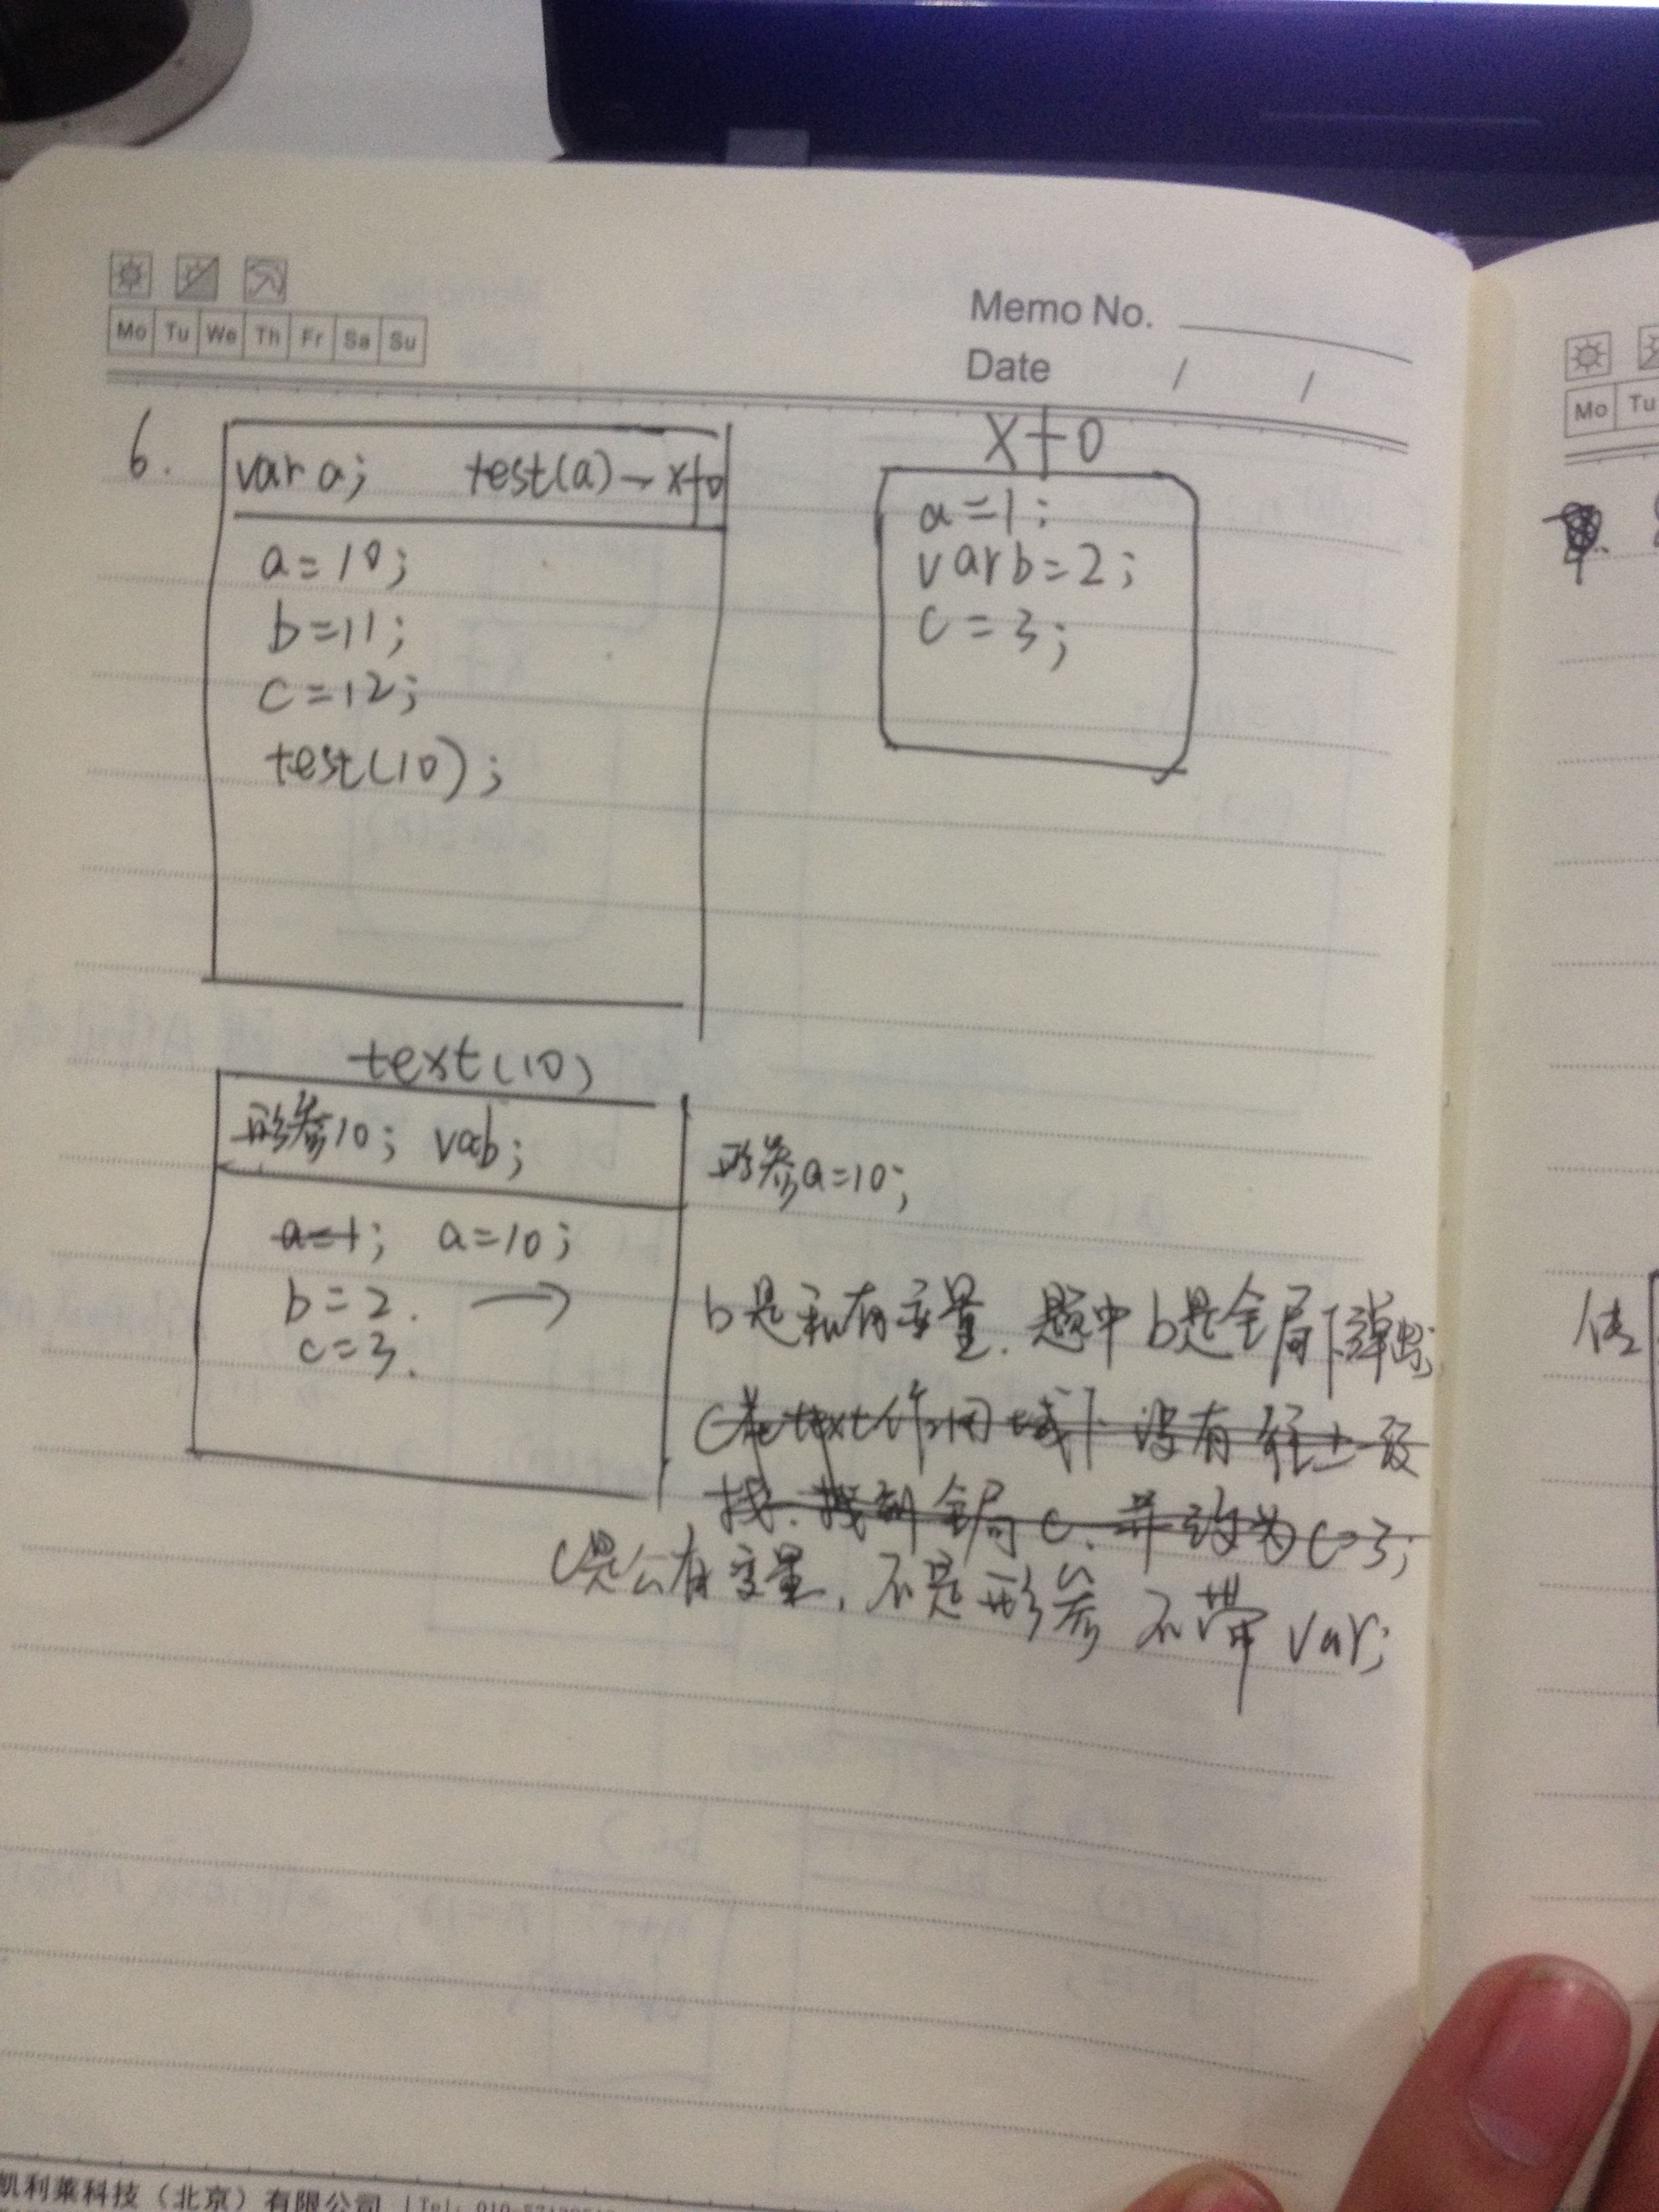 Mo Tu We Th Fr Sa Su
Memo No.
Date / /
6.
var a; test(a) — xf0
a=10;
b=11;
c=12;
test(10);
xf0
a=1;
var b=2;
c=3;
text(10)
形参10; vab;
a=1; a=10;
b=2. →
c=3.
形参a=10;
b是私有变量. 题中b是全局下弹出;
c在text作用域下没有 往上一级
找. 找到全局c. 并改为c=3;
c是公有变量, 不是形参 不带var;
Mo Tu
凯利莱科技（北京）有限公司 | Tel: 010-